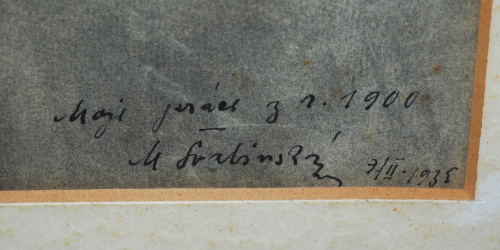 Moje práce z r. 1900
M Švabinský 7/II. 1935